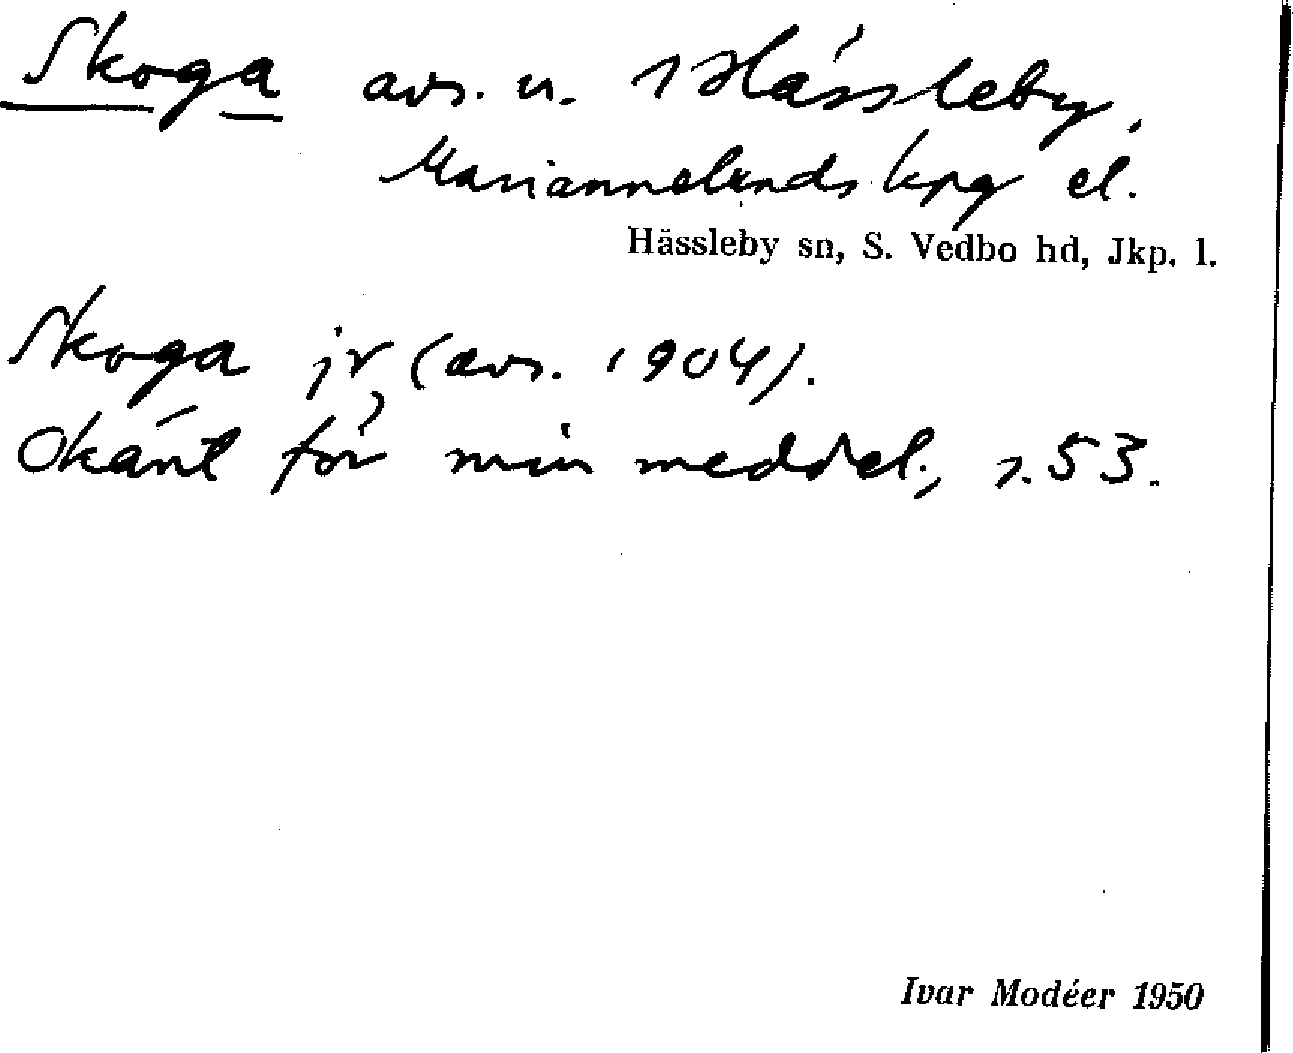 Skoga avs. u. 1 Hässleby,
Mariannelunds kpg el.
Hässleby sn, S. Vedbo hd, Jkp. l.
Skoga jr (avs. 1904).
Okänt för min meddel., s. 53.
Ivar Modéer 1950